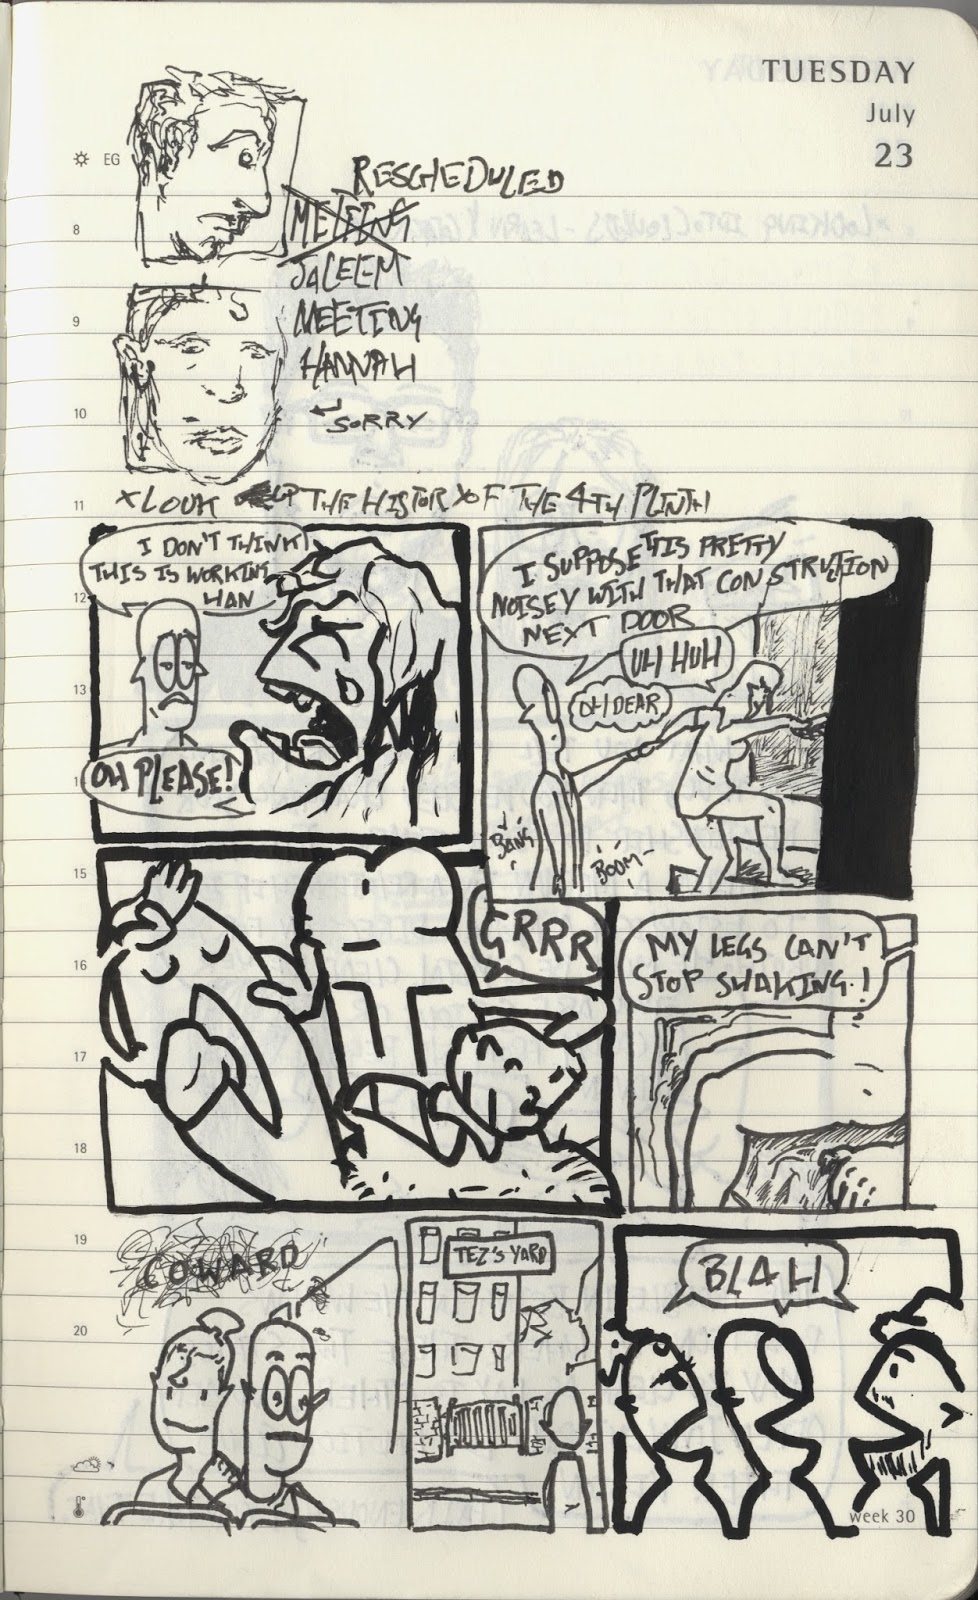 TUESDAY
July
23
EG
8
9
10
11
12
13
15
16
17
18
19
20
RESCHEDULED
MEETING
JALEEM
MEETING
HANNAH
SORRY
x LOOK UP THE HISTORY OF THE 4TH PLINTH
I DON'T THINK
THIS IS WORKING
HAN
OH PLEASE!
I SUPPOSE THIS PRETTY
NOISEY WITH THAT CONSTRUTION
NEXT DOOR
UH HUH
OH DEAR
BANG
BOOM
GRRR
MY LEGS CAN'T
STOP SHAKING!
COWARD
TEZ'S YARD
BLAH
week 30